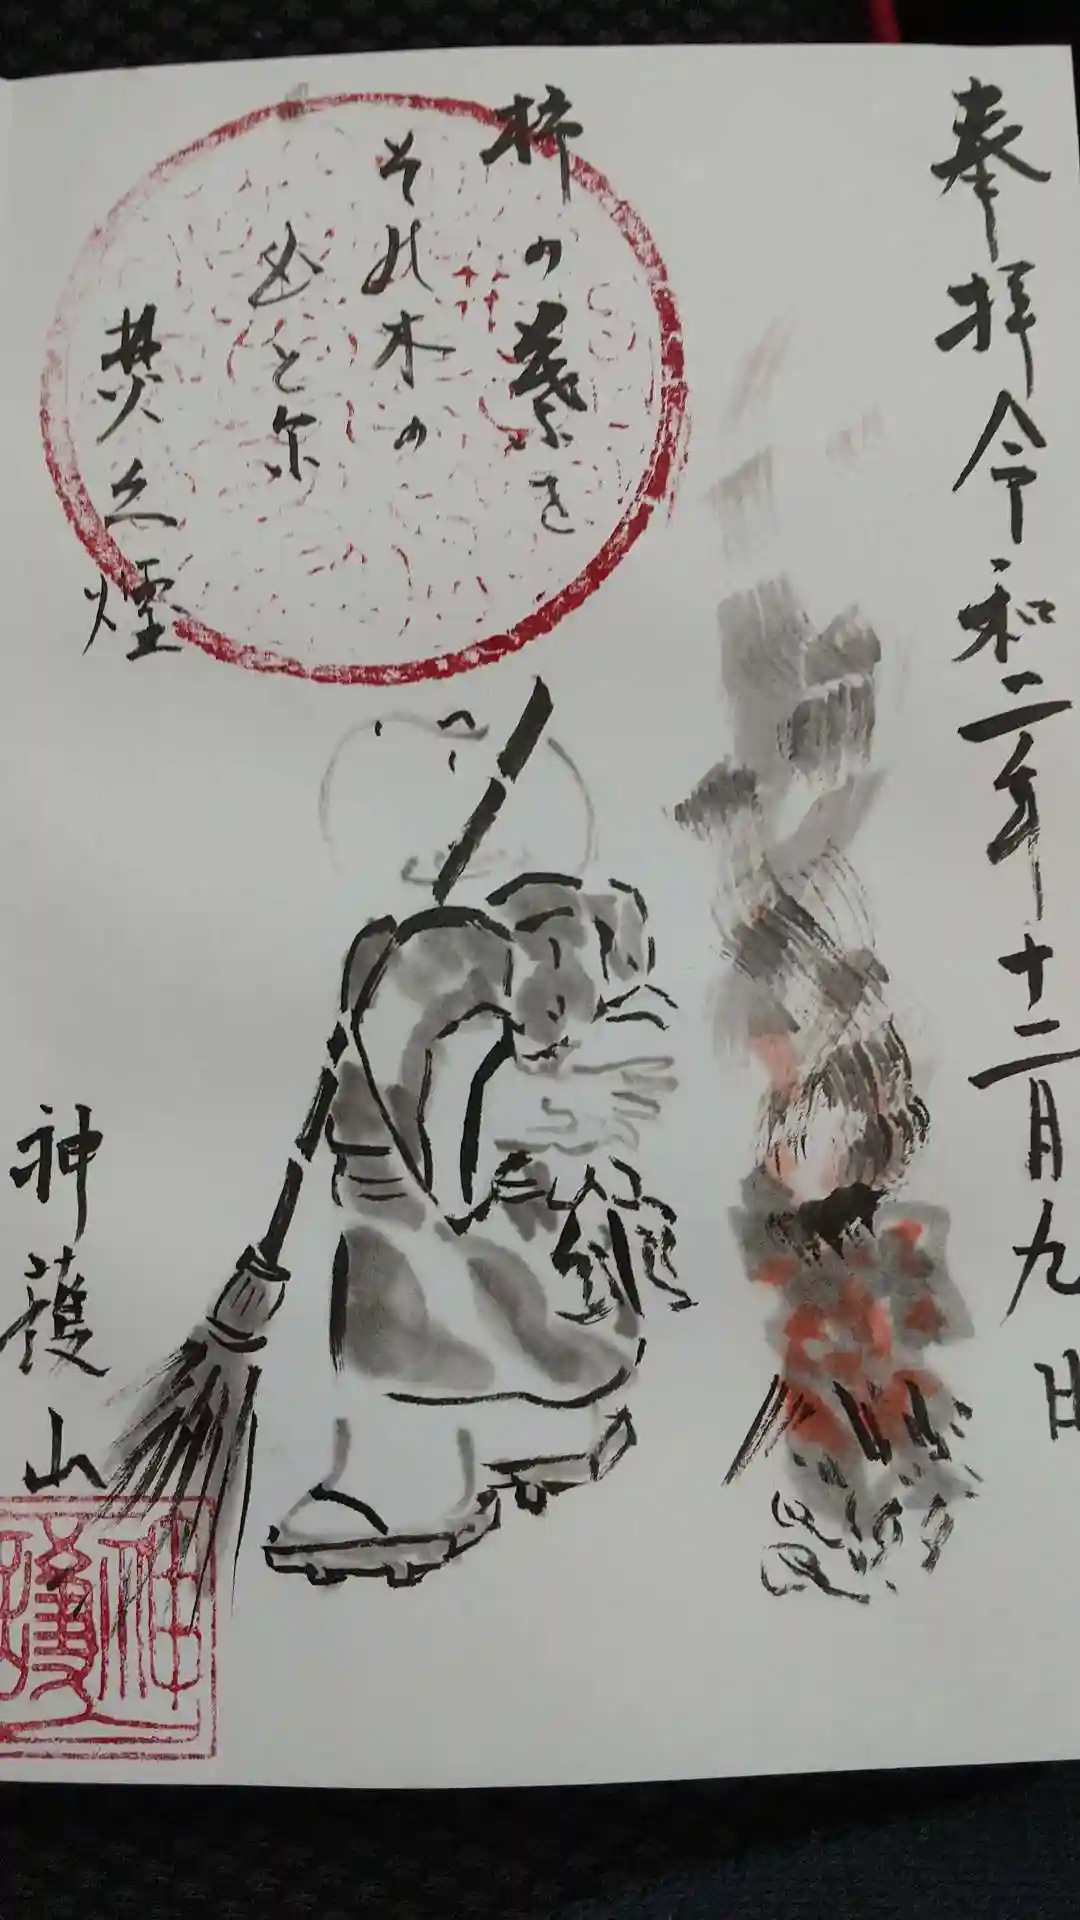 奉拝 令和二年十二月九日
柿の葉を
その木の
もとに
焚く煙
神護山